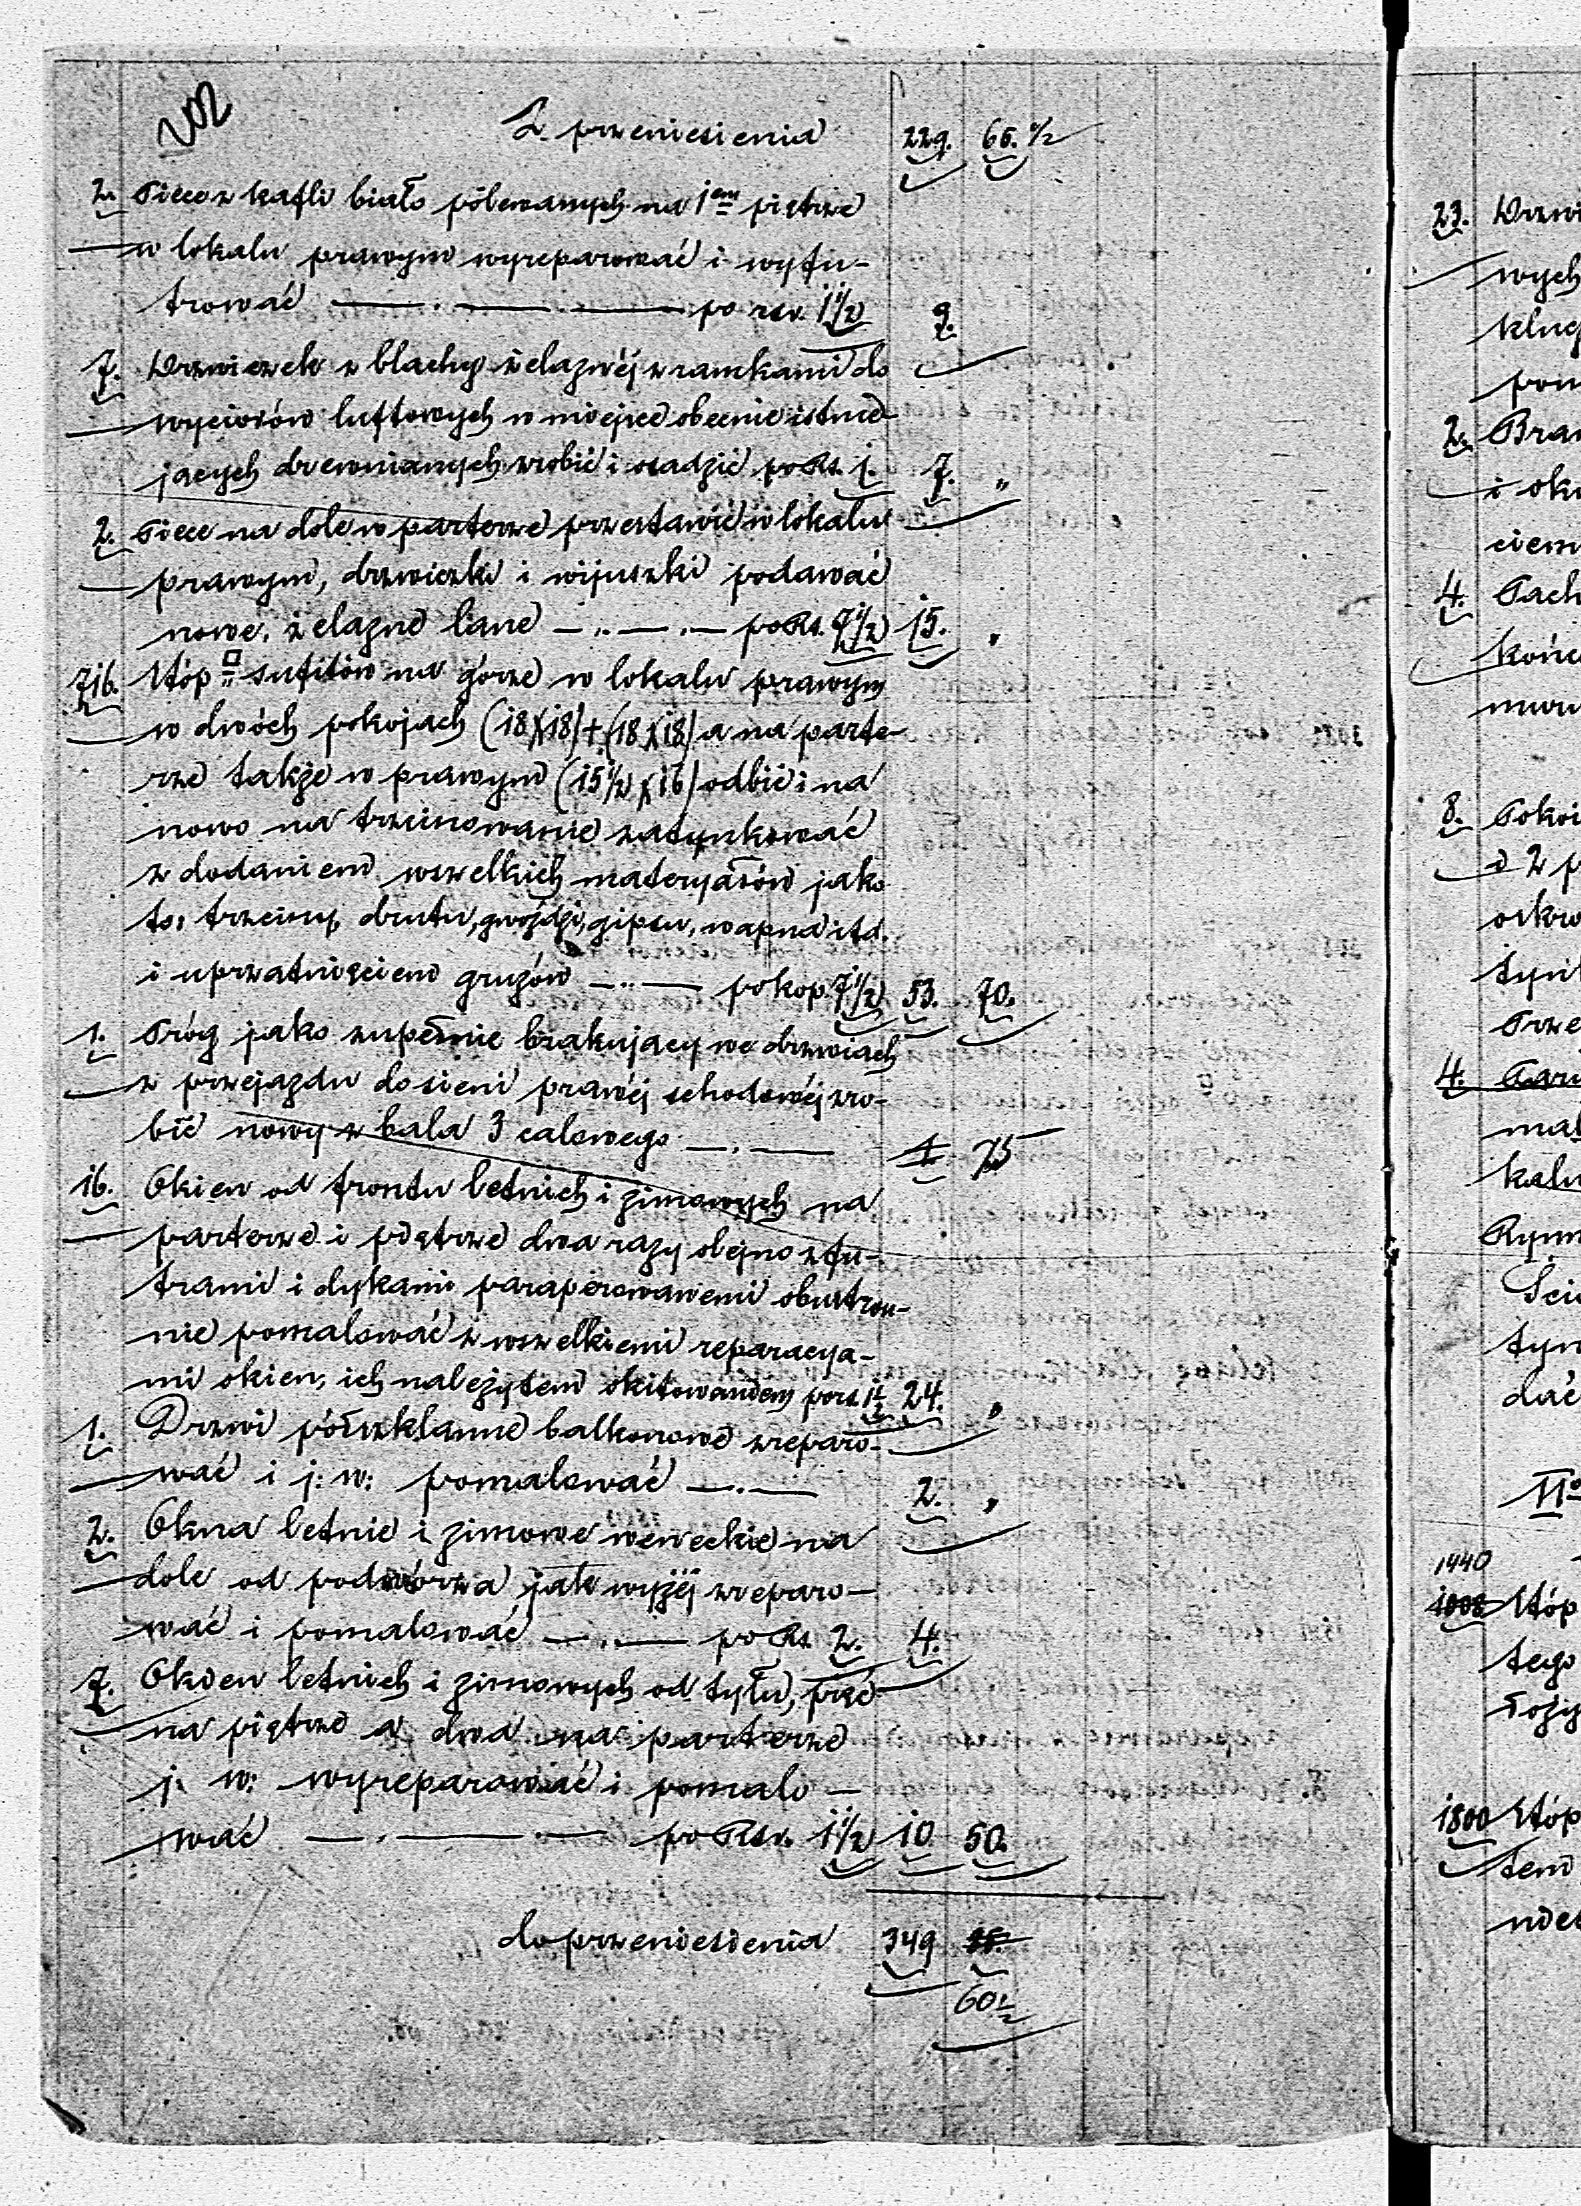 202
Z przeniesienia 229. 65. 1/2
2. Piece z kafli biało polewanych na 1em piętrze
w lokalu prawym wyreparować i wyfu-
trować —— . —— . —— po rsr. 1 1/2 9.
7. Drzwiczek z blachy żelaznéj z ramkami do
wyciorów luftowych w miejsce obecnie istnie-
jących drewnianych zrobić i osadzić po Rs. 1. 7. „
2. Piece na dole w parterze przestawić w lokalu
prawym, drzwiczki i wijuszki podawać
nowe, żelazne lane — .. — . — po Rs. 7 1/2 15. „
716. Stóp □ sufitów na górze w lokalu prawym
w dwóch pokojach (18 X 18) + (18 X 18) a na parte-
rze także w prawym (15 1/2 X 16) odbić i na
nowo na trzcinowanie zatynkować
z dodaniem wszelkich materyałów jako
to: trzciny, drutu, gwoździ, gipsu, wapna itd.
i uprzatnięciem gruzów — .. — po kop. 7 1/2 53. 70.
1. Próg jako zupełnie brakujący we drzwiach
z przejazdu do sieni prawéj schodowéj zro-
bić nowy z bala 3 calowego — . — 1 75
16. Okien od frontu letnich i zimowych na
parterze i piętrze dwa razy olejno z fu-
trami i dykami paraperowawemi obustron-
nie pomalować z wszelkiemi reparacya-
mi okien, ich należytem okitowaniem po rs. 1 1/2 24. „
1. Drzwi półszklanne balkonowe zreparo-
wać i j: w: pomalować — . — 2. „
2. Okna letnie i zimowe weneckie na
dole od podwórza jak wyżéj zreparo-
wać i pomalować — .. — po Rs. 2. 4.
7. Okien letnich i zimowych od tyłu, pięć
na piętrze a dwa na parterze
j. w: wyreparować i pomalo-
wać — . —— . — po Rsr. 1 1/2 10 50.
do przeniesienia 349
60 1/2
23. Drzwi
wych
klucz
pom
2. Bram
i oku
ciem
4. Pach
końc
muru
8. Pokoi
i 2 p
oskro
tynk
Prze
4.
mal
kalu
Rynn
Ści
tyn
dać
IIo
1440
1008 Stóp
tego
łoży
1800 Stóp
tem
nie